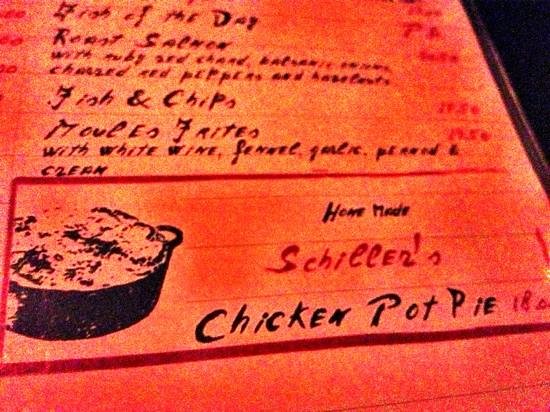 Fish of the Day
Roast Salmon
with ruby red chard, balsamic onions
charred red peppers and hazelnuts
Fish & Chips
Moules Frites
with white wine, fennel, garlic, pernod &
cream
Home Made
Schiller's
Chicken Pot Pie